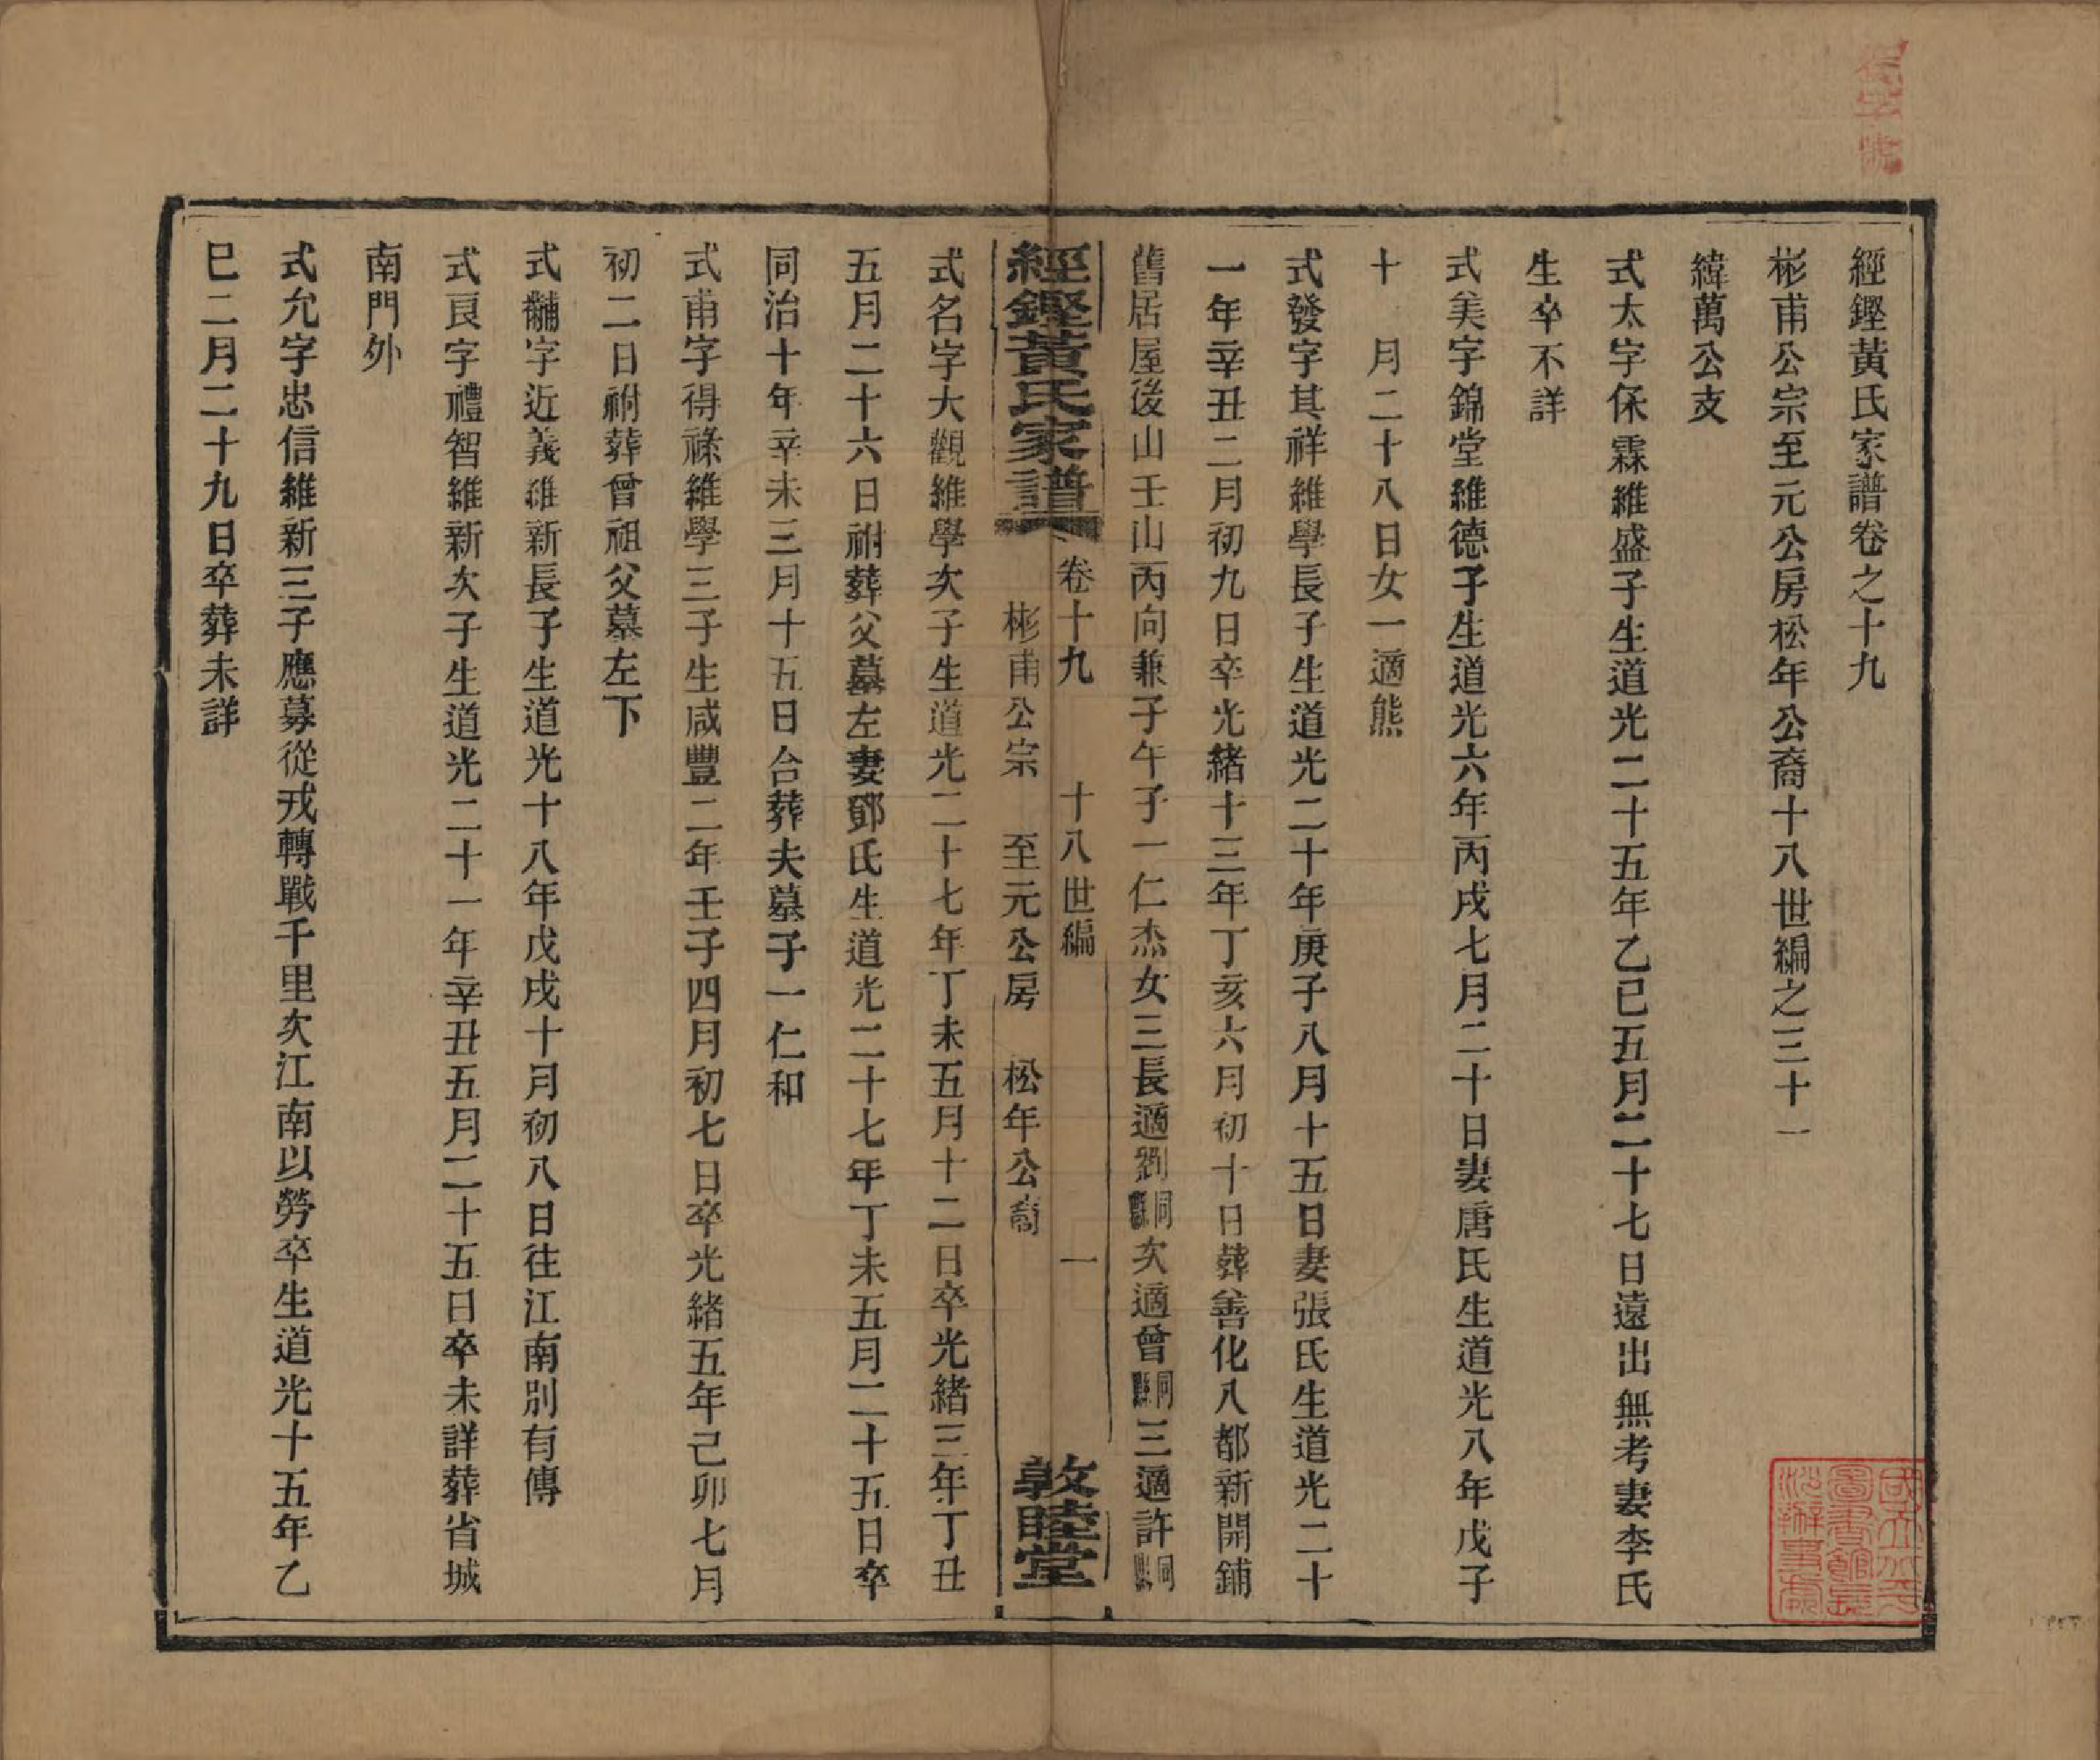 經鏗黃氏家譜卷之十九
彬甫公宗至元公房松年公裔十八世編之三十一
緯萬公支
式太字保霖維盛子生道光二十五年乙巳五月二十七日遠出無考妻李氏
生卒不詳
式美字錦堂維德子生道光六年丙戌七月二十日妻唐氏生道光八年戊子
十　月二十八日女一適熊
式發字其祥維學長子生道光二十年庚子八月十五日妻張氏生道光二十
一年辛丑二月初九日卒光緒十三年丁亥六月初十日葬善化八都新開鋪
舊居屋後山壬山丙向兼子午子一仁杰女三長適劉同縣次適曾同縣三適許同縣
經鏗黃氏家譜
卷十九　十八世編　一
彬甫公宗　至元公房　松年公裔
敦睦堂
式名字大觀維學次子生道光二十七年丁未五月十二日卒光緒三年丁丑
五月二十六日祔葬父墓左妻鄧氏生道光二十七年丁未五月二十五日卒
同治十年辛未三月十五日合葬夫墓子一仁和
式甫字得祿維學三子生咸豐二年壬子四月初七日卒光緒五年己卯七月
初二日祔葬曾祖父墓左下
式黼字近義維新長子生道光十八年戊戌十月初八日往江南別有傳
式良字禮智維新次子生道光二十一年辛丑五月二十五日卒未詳葬省城
南門外
式允字忠信維新三子應募從戎轉戰千里次江南以勞卒生道光十五年乙
巳二月二十九日卒葬未詳